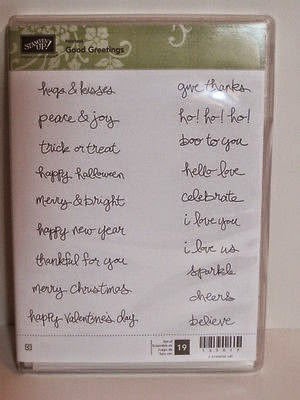 STAMPIN' UP!
Good Greetings
hugs & kisses
peace & joy
trick or treat
happy halloween
merry & bright
happy new year
thankful for you
merry christmas
happy valentine's day
give thanks
ho! ho! ho!
boo to you
hello love
celebrate
i love you
i love us
sparkle
cheers
believe
19